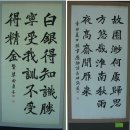 故園渺何處歸思
方悠哉淮南秋雨
夜高齋聞雁來
寧受我訓不受
白銀得知識勝
得精金